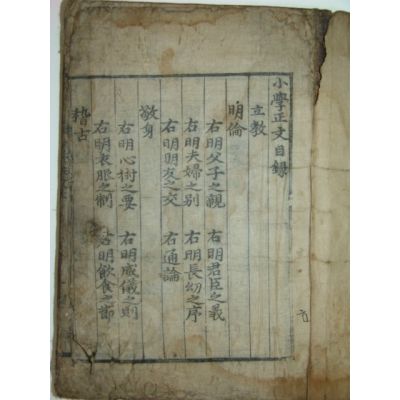 小學正文目錄
立教
明倫
右明父子之親 右明君臣之義
右明夫婦之別 右明長幼之序
右明朋友之交 右通論
敬身
右明心術之要 右明威儀之則
右明衣服之制 右明飮食之節
稽古